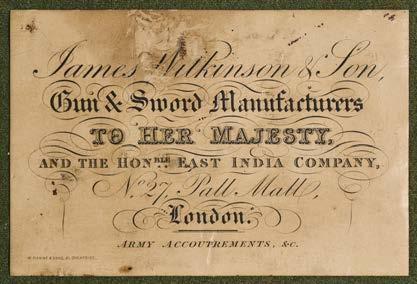 James Wilkinson & Son,
Gun & Sword Manufacturers
TO HER MAJESTY,
AND THE HONBLE EAST INDIA COMPANY,
No. 27, Pall Mall,
London.
ARMY ACCOUTREMENTS, &c.